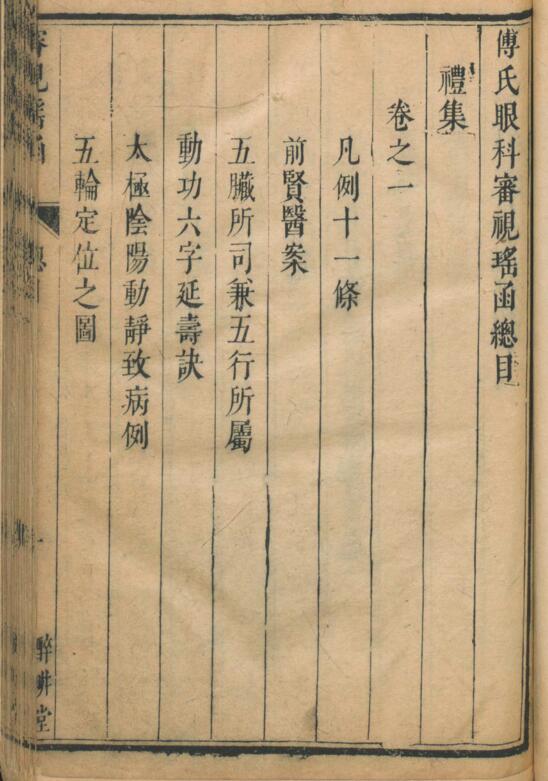 傅氏眼科審視瑤函總目
禮集
卷之一
凡例十一條
前賢醫案
五臟所司兼五行所屬
動功六字延壽訣
太極陰陽動靜致病例
五輪定位之圖
審視瑤函 總目 一 醉畊堂